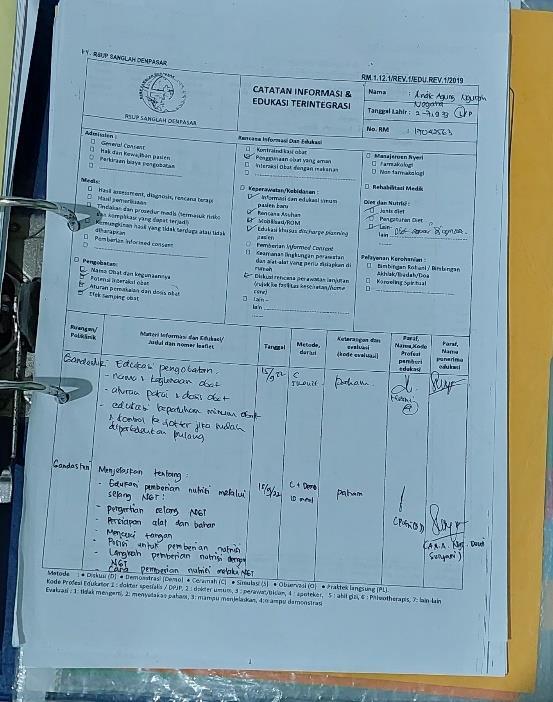 RSUP SANGLAH DENPASAR
RM.1.12.1/REV.1/EDU.REV.1/2019
RSUP SANGLAH DENPASAR
CATATAN INFORMASI &
EDUKASI TERINTEGRASI
Nama : Anak Agung Ngurah
Tanggal Lahir : L/P
No. RM :
Rencana Informasi Dan Edukasi
Admission :
General Consent
Hak dan Kewajiban pasien
Perkiraan biaya pengobatan
Medis:
Hasil assessment, diagnosis, rencana terapi
Hasil pemeriksaan
Tindakan dan prosedur medis (termasuk risiko
dan komplikasi yang dapat terjadi)
Kemungkinan hasil yang tidak terduga atau tidak
diharapkan
Pemberian informed consent
Pengobatan:
Nama Obat dan kegunaannya
Potensi interaksi obat
Aturan pemakaian dan dosis obat
Efek samping obat
Kontraindikasi obat
Penggunaan obat yang aman
Interaksi Obat dengan makanan
Keperawatan/Kebidanan :
Informasi dan edukasi umum
pasien baru
Rencana Asuhan
Mobilisasi/ROM
Edukasi khusus discharge planning
pasien
Pemberian Informed Consent
Keamanan lingkungan perawatan
dan alat-alat yang perlu disiapkan di
rumah
Diskusi rencana perawatan lanjutan
(rujuk ke fasilitas kesehatan/home
care)
lain –
lain
Manajemen Nyeri
Farmakologi
Non farmakologi
Rehabilitasi Medik
Diet dan Nutrisi :
Jenis diet
Pengaturan Diet
Lain-
lain Diet sesuai
Pelayanan Kerohanian :
Bimbingan Rohani / Bimbingan
Akhlak/Ibadah/Doa
Konseling Spiritual
Ruangan/
Poliklinik
Materi Informasi dan Edukasi/
Judul dan nomor leaflet
Tanggal
Metode,
durasi
Keterangan dan
evaluasi
(kode evaluasi)
Paraf,
Nama,Kode
Profesi
pemberi
edukasi
Paraf,
Nama
penerima
edukasi
Edukasi pengobatan
- nama & kegunaan obat
- aturan pakai & dosis obat
- edukasi kepatuhan minum obat
& kontrol ke dokter jika sudah
diperbolehkan pulang
15/9/22
C
5 menit
paham
Menjelaskan tentang :
- Edukasi pemberian nutrisi melalui
selang NGT :
- pengertian selang NGT
- Persiapan alat dan bahan
- Mencuci tangan
- Posisi untuk pemberian nutrisi
- Langkah pemberian nutrisi dengan
NGT
- Cara pemberian nutrisi melalui NGT
15/9/22
C + Demo
10 menit
paham
Metode : • Diskusi (D) • Demonstrasi (Demo) • Ceramah (C) • Simulasi (S) • Observasi (O) • Praktek langsung (PL).
Kode Profesi Edukator 1 : dokter spesialis / DPJP, 2 : dokter umum, 3 : perawat/bidan, 4 : apoteker, 5 : ahli gizi, 6 : Phisiotherapis, 7: lain-lain
Evaluasi : 1: tidak mengerti, 2: menyatakan paham, 3: mampu menjelaskan, 4:mampu demonstrasi